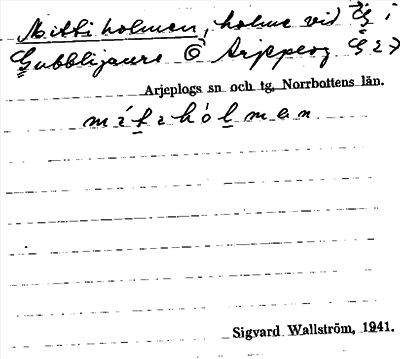 Mittiholmen, holme vid Ög i
Gubblijaure © Arjeplog G 27
Arjeplogs sn och tg, Norrbottens län.
mítihólmen
Sigvard Wallström, 1941.